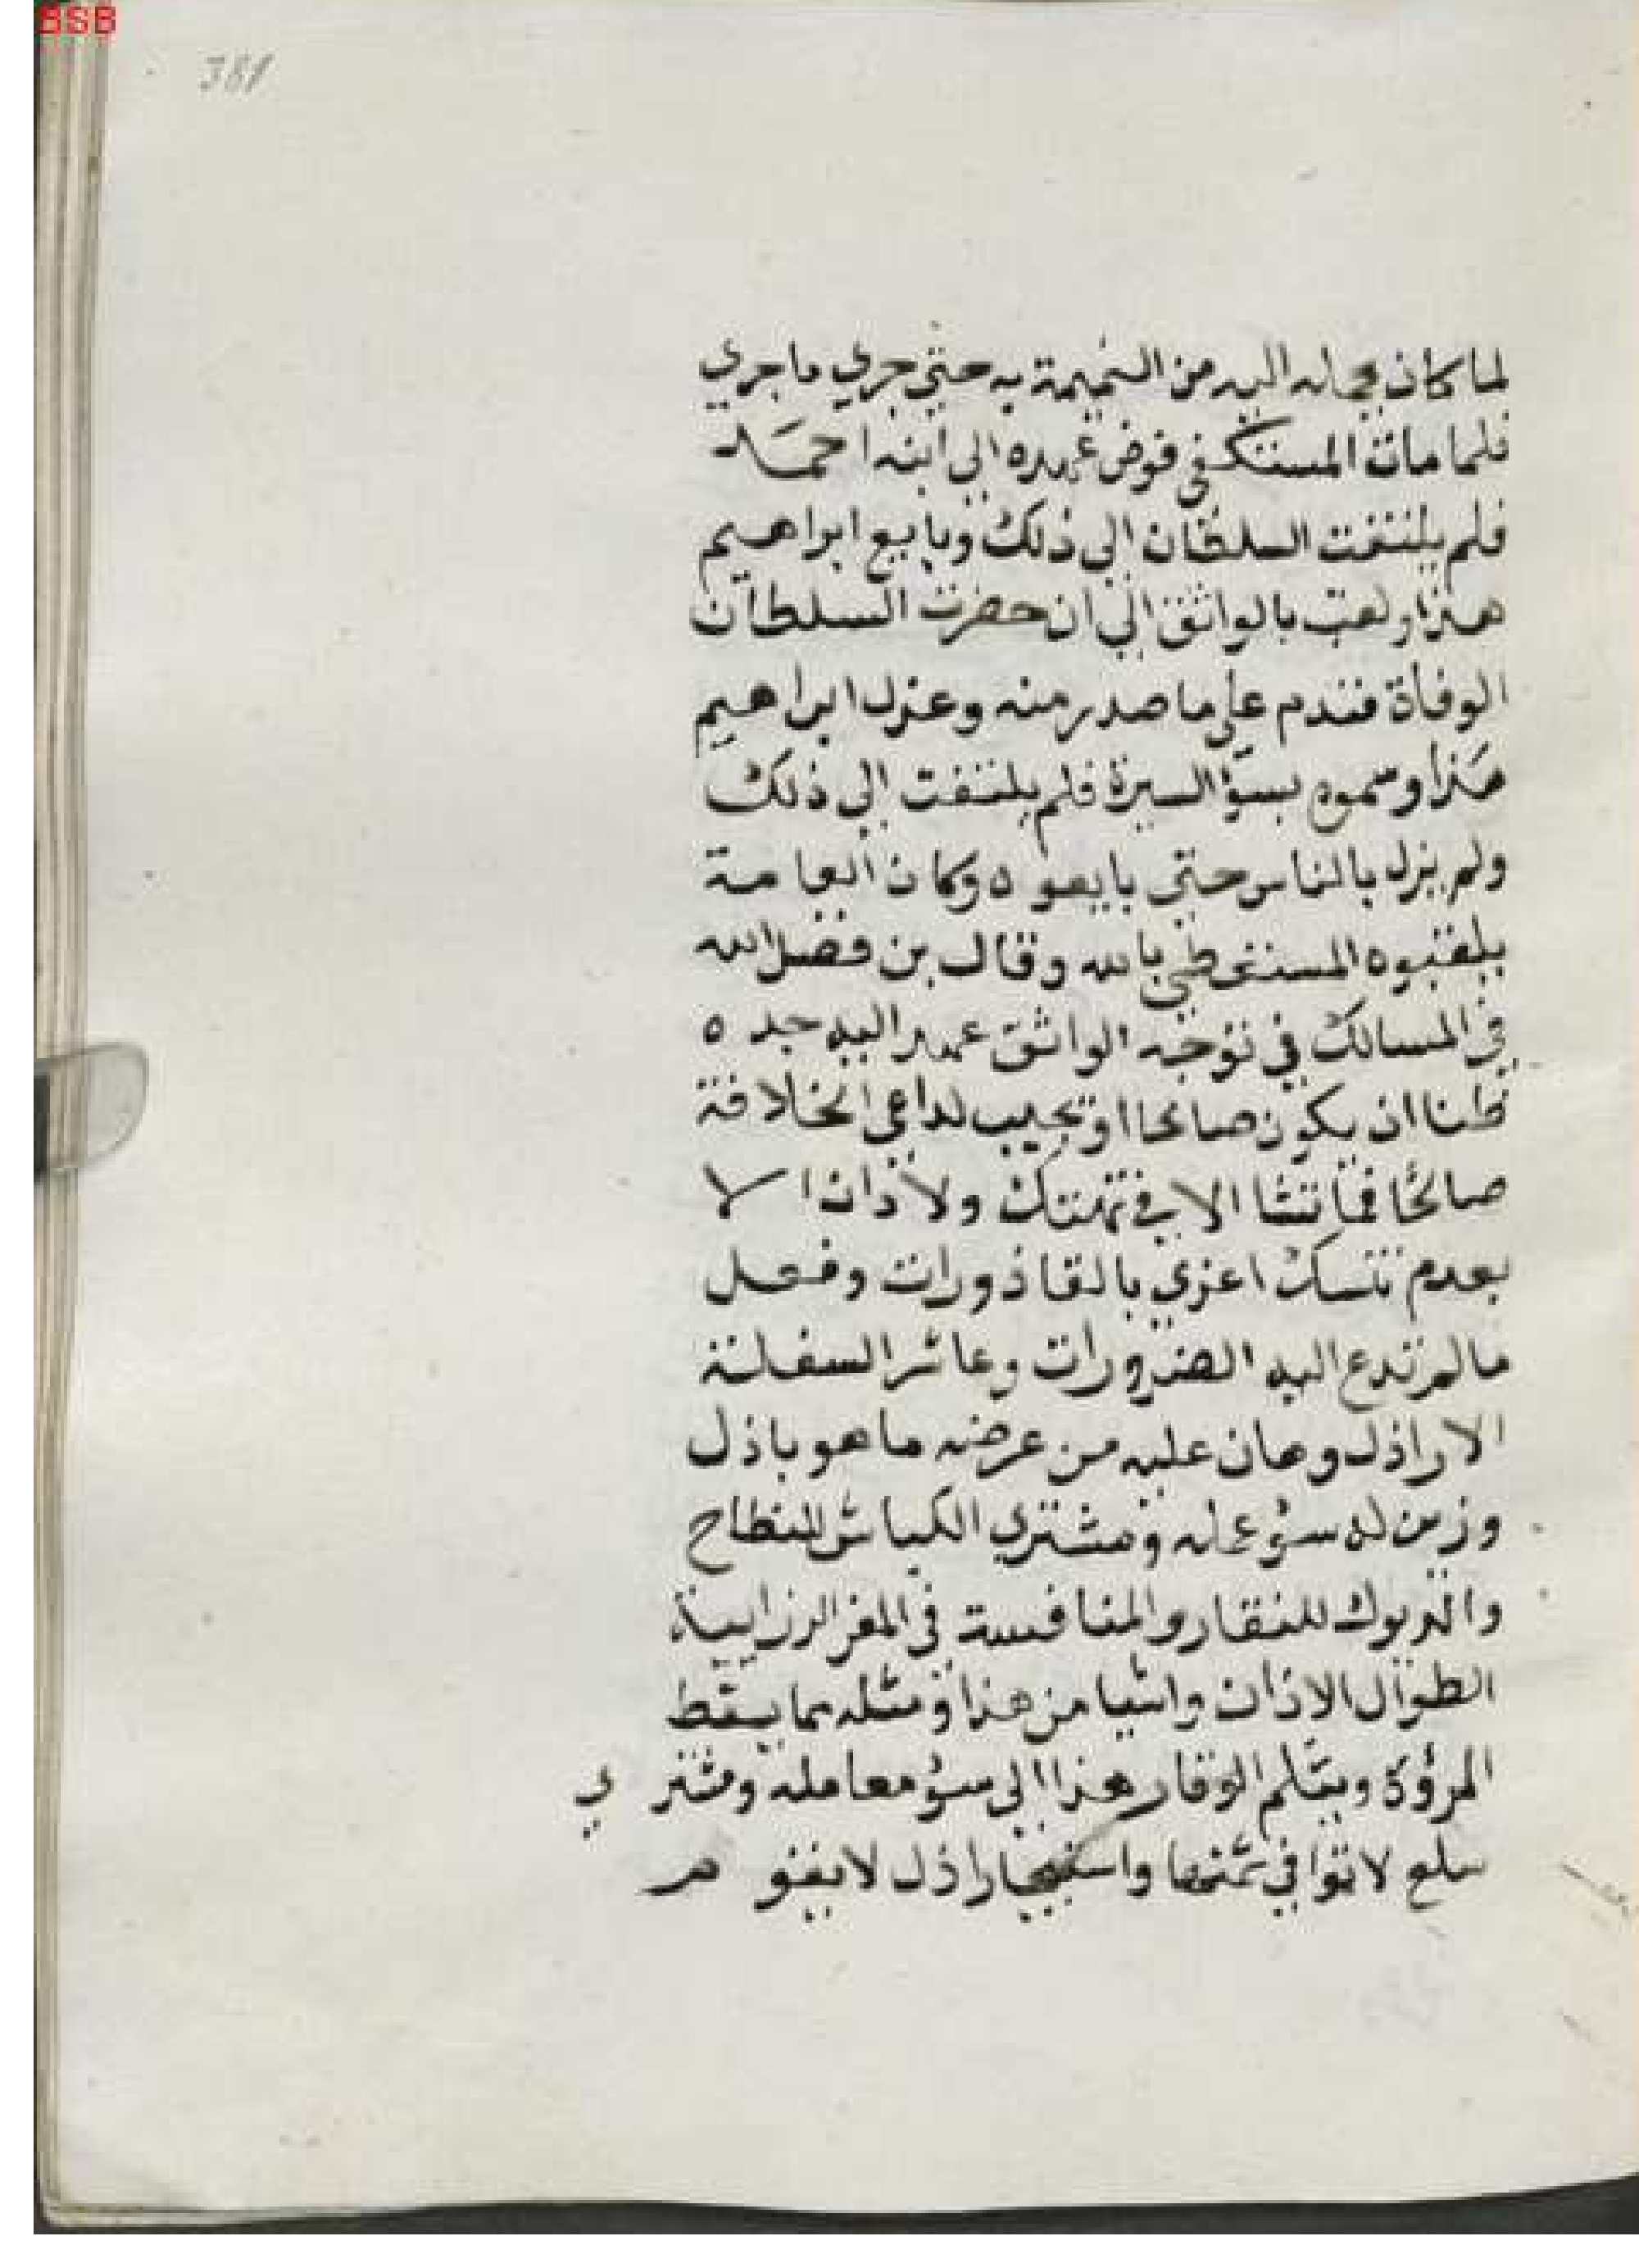 BSB
381
لما كان يحمله اليه من النميمة به حتي جري ماجري
فلما مات المستكفي فوض عهده الي ابنه احمد
فلم يلتفت السلطان الي ذلك وبايع ابراهيم
هذا ولقب بالواثق الي ان حضرت السلطان
الوفاة فندم علي ما صدر منه وعزل ابراهيم
هذا وسموه بسؤ السيرة فلم يلتفت الي ذلك
ولم يزل بالناس حتي بايعوه وكان العامة
يلقبوه المستعطي بالله وقال بن فضل الله
في المسالك في توجه الواثق عهد اليه جده
ظنا ان يكون صالحا او يجيب لداعي الخلافة
صالحًا فما نشا الا في تهتك ولا دان الا
بعدم تنسك اغري بالقاذورات وفعل
مالم تدع اليه الضرورات وعاشر السفلة
الاراذل وهان عليه من عرضه ما هو باذل
وزين له سؤ عمله ومشتري الكباش للنطاح
والديوك للنقار والمنافسة في المعز الزرايبية
الطوال الاذان واشيا من هذا ومثله مما يسقط
المرؤة ويثلم الوقار هذا الي سؤ معامله ومشتري
سلع لا توا في ثمنها واستيجار اذل لا يقوم